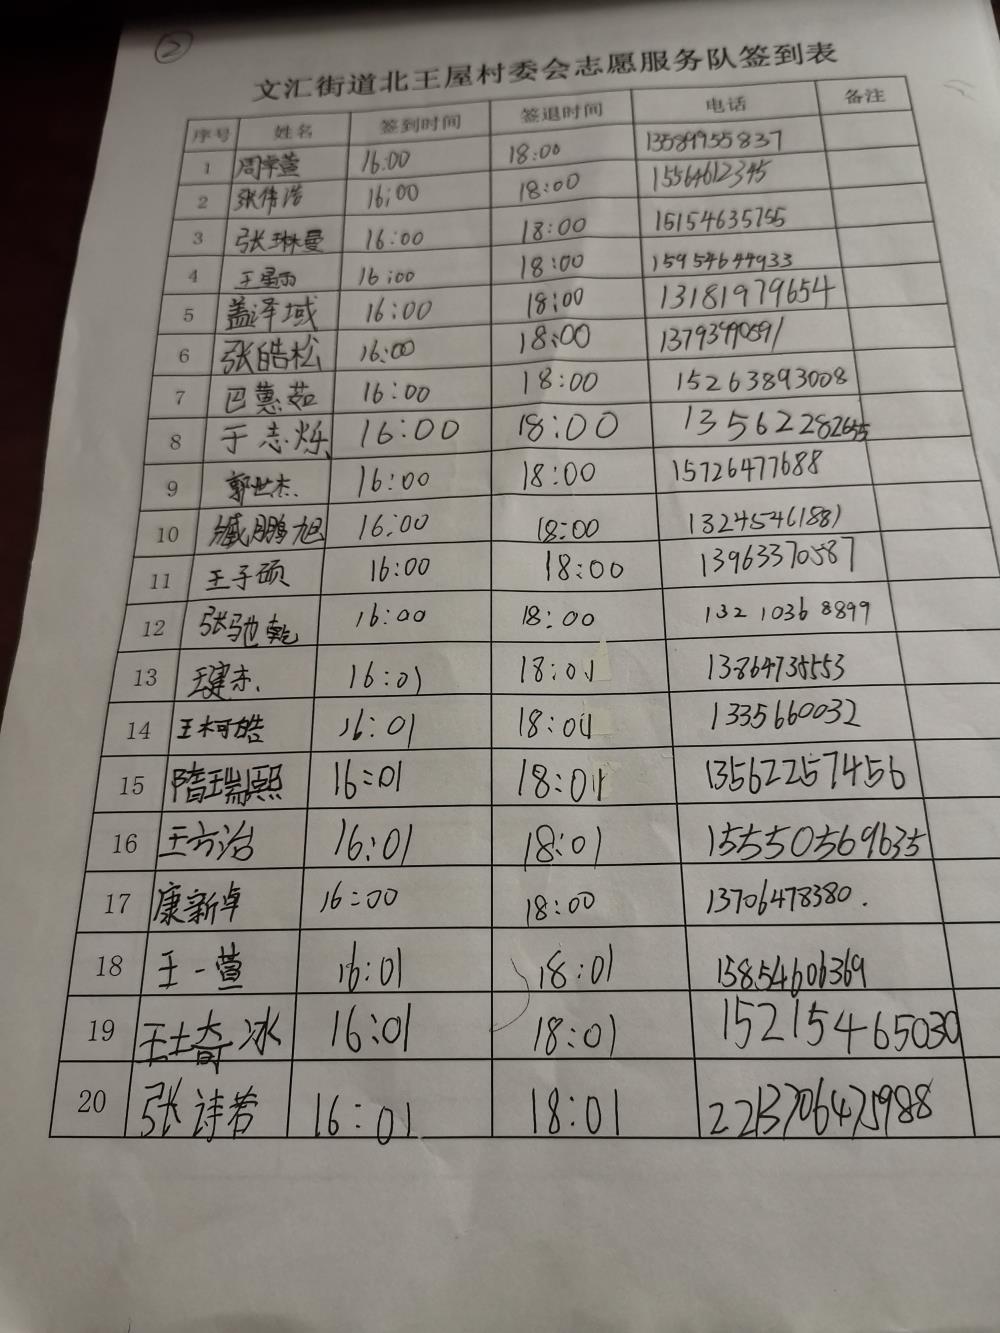 ②
文汇街道北王屋村委会志愿服务队签到表
序号 姓名 签到时间 签退时间 电话 备注
1 周学萱 16:00 18:00 13589955837
2 张倚浩 16:00 18:00 15564612345
3 张琳曼 16:00 18:00 15154635755
4 王星雨 16:00 18:00 15954644933
5 盖泽域 16:00 18:00 13181979654
6 张皓松 16:00 18:00 13793990591
7 巴蕙茹 16:00 18:00 15263893008
8 于志烁 16:00 18:00 13562282655
9 郭世杰 16:00 18:00 15726477688
10 臧鹏旭 16:00 18:00 13245461881
11 王子硕 16:00 18:00 13963370587
12 张驰乾 16:00 18:00 13210368899
13 王建杰 16:01 18:01 13864735553
14 王柯皓 16:01 18:01 1335660032
15 隋瑞熙 16:01 18:01 13562257456
16 王方治 16:01 18:01 15550569635
17 康新卓 16:00 18:00 13706478380.
18 王一萱 16:01 18:01 15854606369
19 王士奇冰 16:01 18:01 15215465030
20 张诗若 16:01 18:01 2213706475988